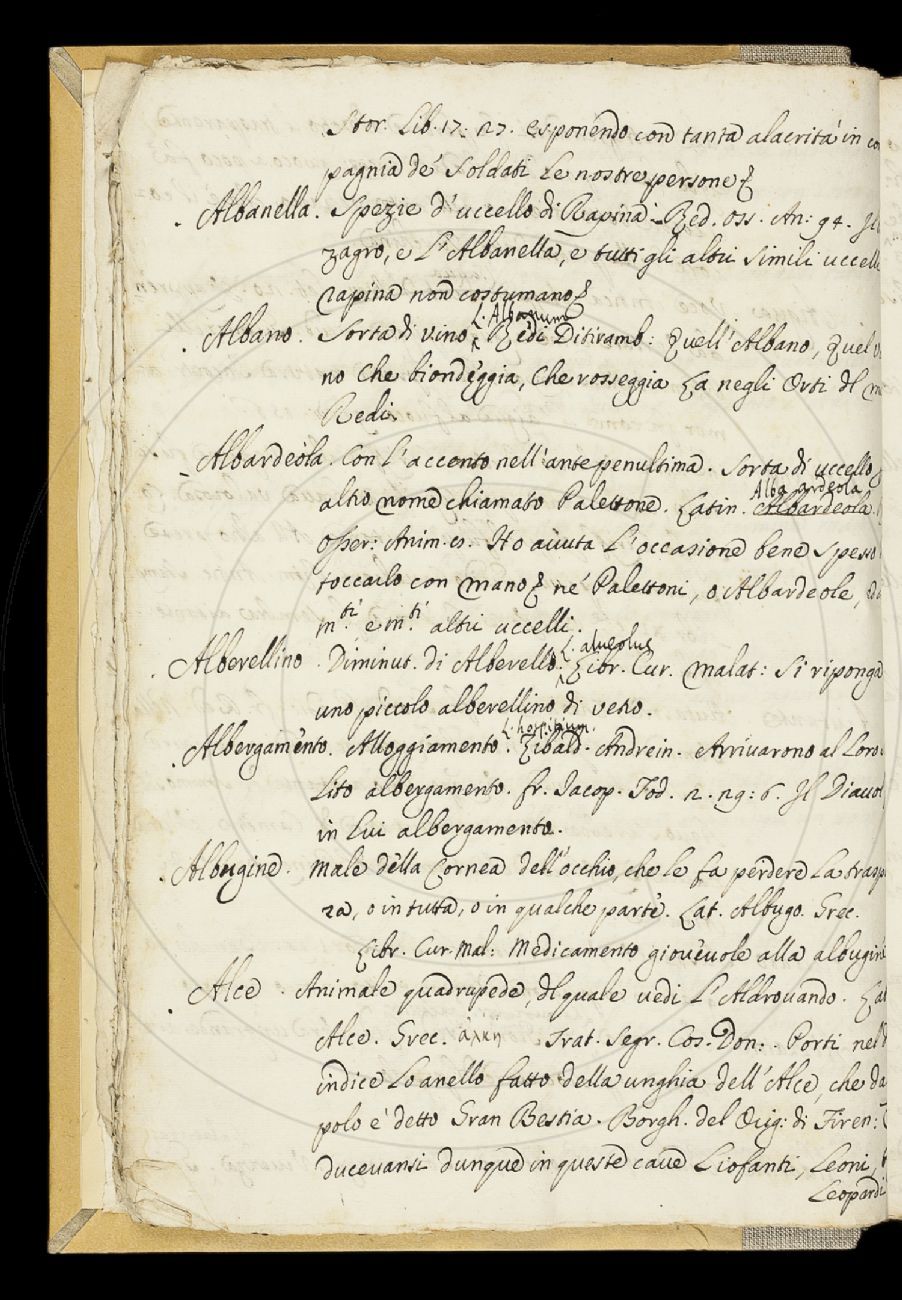 Stor. Lib. 17: 27. esponendo con tanta alacrità in co
pagnia de' Soldati le nostre persone
Albanella. Spezie d'uccello di Rapina. Red. Oss. An: 94. Il
zagro, e l'Albanella, e tutti gli altri simili uccelli
rapina non costumano
L. Albanum
Albano. Sorta di vino. Redi Ditiramb: Quell'Albano, quel
no Che biondeggia, Che rosseggia Là negli Orti del m
Redi.
Albardeola. Con l'accento nell'antepenultima. Sorta di uccello
Alba ardeola
altro nome chiamato Palettone. Latin. Albardeola.
Osser: Anim. Ho avuta l'occasione bene spesso
toccarlo con mano né Palettoni, o Albardeole,
m.ti e m.ti altri uccelli.
L. alveolus
Alberellino. Diminut. di Alberello. Libr. Cur. malat: Si riponga
uno piccolo alberellino di vetro.
L. hospitium.
Albergamento. Alloggiamento. Zibald. Andrein. Arrivarono al loro
lito albergamento. fr. Iacop. Tod. 2. 29: 6. Il Diavol
in lui albergamento.
Albugine. Male della Cornea dell'occhio, che le fa perdere la trasp
za, o in tutta, o in qualche parte. Lat. Albugo. Grec.
Libr. Cur. Mal: Medicamento giovevole alla albugine
Alce. Animale quadrupede, del quale vedi l'Aldrovando. Lat
Alce. Grec. ἀλκη Trat. Segr. Cos. Don: Porti nel d
indice lo anello fatto della unghia dell'Alce, che da
polo è detto Gran Bestia. Borgh. del Orig: di Firen:
ducevansi dunque in queste cave Liofanti, Leoni,
Leopardi